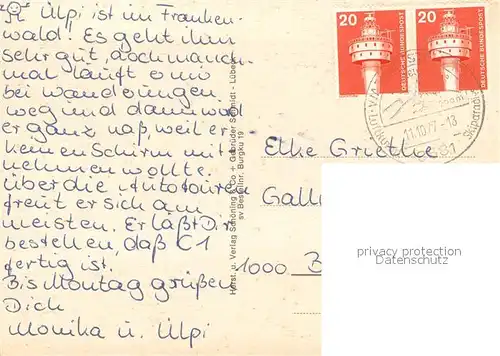 Ulpi ist im Franken-
wald! Es geht ihm
sehr gut, doch manch-
mal läuft Omi
bei Wanderungen
weg und dann wird
er ganz naß, weil er
keinen Schirm mit
nehmen wollte.
über die Autotouren
freut er sich am
meisten. Er läßt Dir
bestellen, daß C1
fertig ist.
Bis Montag grüßen
Dich
Monika u. Ulpi
Herst. u. Verlag Schöning & Co + Gebrüder Schmidt - Lübeck
sv Bestellnr. Burgku 19
20 20
DEUTSCHE BUNDESPOST
DEUTSCHE BUNDESPOST
11.10.77-18
Elke Griethe
Galli
1000 B
privacy protection
Datenschutz